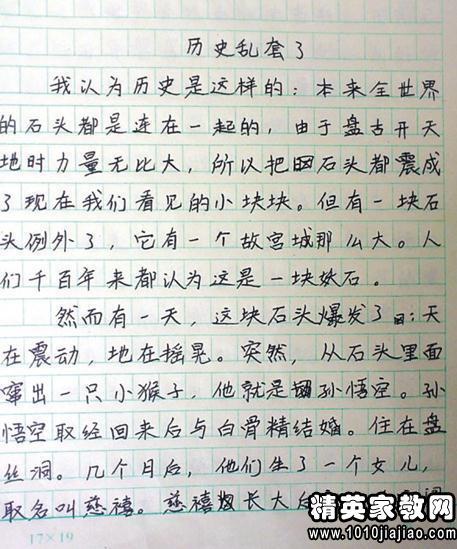 历史乱套了
我认为历史是这样的：本来全世界
的石头都是连在一起的，由于盘古开天
地时力量无比大，所以把石头都震成
了现在我们看见的小块块。但有一块石
头例外了，它有一个故宫城那么大。人
们千百年来都认为这是一块妖石。
然而有一天，这块石头爆发了：天
在震动，地在摇晃。突然，从石头里面
窜出一只小猴子，他就是孙悟空。孙
悟空取经回来后与白骨精结婚。住在盘
丝洞。几个月后，他们生了一个女儿，
取名叫慈禧。慈禧长大
精英家教网
www.1010jiajiao.com
17×19